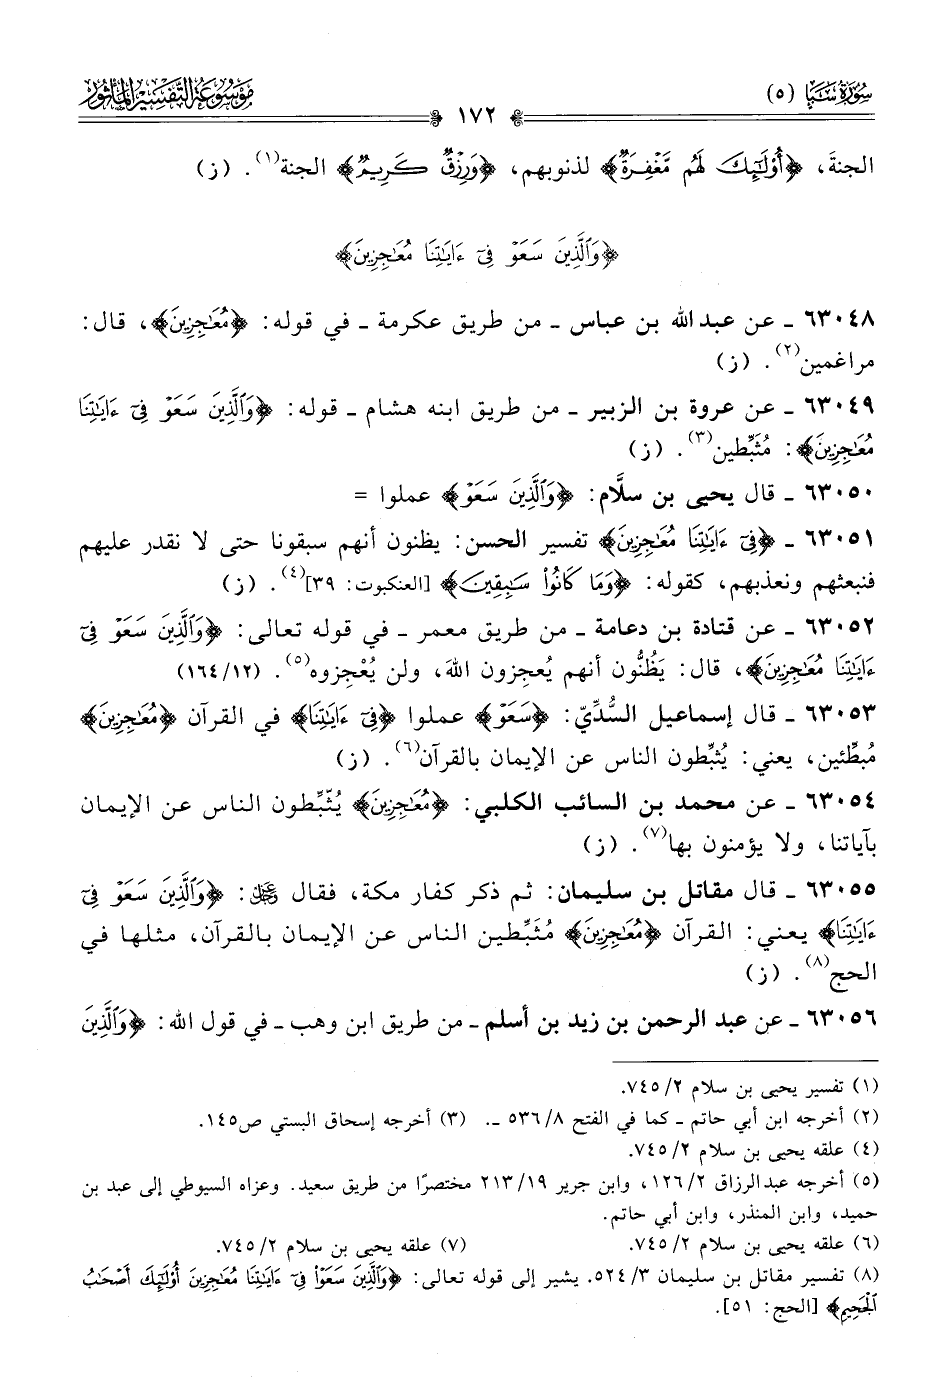 سُورَةُ سَبَإٍ (٥)
١٧٢
مَوْسُوعَةُ التَّفْسِيرِ المَأْثُورِ
الجنةَ، ﴿أُوْلَٰٓئِكَ لَهُم مَّغْفِرَةٌ﴾ لذنوبهم، ﴿وَرِزْقٌ كَرِيمٌ﴾ الجنة(١). (ز)
﴿وَٱلَّذِينَ سَعَوْ فِىٓ ءَايَٰتِنَا مُعَٰجِزِينَ﴾
٦٣٠٤٨ ـ عن عبد الله بن عباس ـ من طريق عكرمة ـ في قوله: ﴿مُعَٰجِزِينَ﴾، قال:
مراغمين(٢). (ز)
٦٣٠٤٩ ـ عن عروة بن الزبير ـ من طريق ابنه هشام ـ قوله: ﴿وَٱلَّذِينَ سَعَوْ فِىٓ ءَايَٰتِنَا
مُعَٰجِزِينَ﴾: مُثَبِّطين(٣). (ز)
٦٣٠٥٠ ـ قال يحيى بن سلَّام: ﴿وَٱلَّذِينَ سَعَوْ﴾ عملوا =
٦٣٠٥١ ـ ﴿فِىٓ ءَايَٰتِنَا مُعَٰجِزِينَ﴾ تفسير الحسن: يظنون أنهم سبقونا حتى لا نقدر عليهم
فنبعثهم ونعذبهم، كقوله: ﴿وَمَا كَانُوا۟ سَٰبِقِينَ﴾ [العنكبوت: ٣٩](٤). (ز)
٦٣٠٥٢ ـ عن قتادة بن دعامة ـ من طريق معمر ـ في قوله تعالى: ﴿وَٱلَّذِينَ سَعَوْ فِىٓ
ءَايَٰتِنَا مُعَٰجِزِينَ﴾، قال: يَظُنُّون أنهم يُعجزون اللهَ، ولن يُعْجزوه(٥). (١٦٤/١٢)
٦٣٠٥٣ ـ قال إسماعيل السُّدِّيّ: ﴿سَعَوْ﴾ عملوا ﴿فِىٓ ءَايَٰتِنَا﴾ في القرآن ﴿مُعَٰجِزِينَ﴾
مُبطِّئين، يعني: يُثبِّطون الناس عن الإيمان بالقرآن(٦). (ز)
٦٣٠٥٤ ـ عن محمد بن السائب الكلبي: ﴿مُعَٰجِزِينَ﴾ يُثبِّطون الناس عن الإيمان
بآياتنا، ولا يؤمنون بها(٧). (ز)
٦٣٠٥٥ ـ قال مقاتل بن سليمان: ثم ذكر كفار مكة، فقال ﷻ: ﴿وَٱلَّذِينَ سَعَوْ فِىٓ
ءَايَٰتِنَا﴾ يعني: القرآن ﴿مُعَٰجِزِينَ﴾ مُثَبطين الناس عن الإيمان بالقرآن، مثلها في
الحج(٨). (ز)
٦٣٠٥٦ ـ عن عبد الرحمن بن زيد بن أسلم ـ من طريق ابن وهب ـ في قول الله: ﴿وَٱلَّذِينَ
(١) تفسير يحيى بن سلام ٢/ ٧٤٥.
(٢) أخرجه ابن أبي حاتم ـ كما في الفتح ٨/ ٥٣٦ ـ. (٣) أخرجه إسحاق البستي ص١٤٥.
(٤) علقه يحيى بن سلام ٢/ ٧٤٥.
(٥) أخرجه عبد الرزاق ٢/ ١٢٦، وابن جرير ١٩/ ٢١٣ مختصرًا من طريق سعيد. وعزاه السيوطي إلى عبد بن
حميد، وابن المنذر، وابن أبي حاتم.
(٦) علقه يحيى بن سلام ٢/ ٧٤٥. (٧) علقه يحيى بن سلام ٢/ ٧٤٥.
(٨) تفسير مقاتل بن سليمان ٣/ ٥٢٤. يشير إلى قوله تعالى: ﴿وَٱلَّذِينَ سَعَوْا۟ فِىٓ ءَايَٰتِنَا مُعَٰجِزِينَ أُوْلَٰٓئِكَ أَصْحَٰبُ
ٱلْجَحِيمِ﴾ [الحج: ٥١].